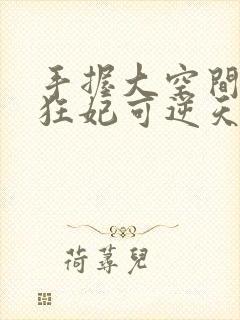 手握大空間
狂妃可逆天
荷蕁兒